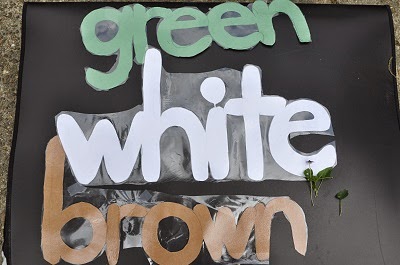 green
white
brown